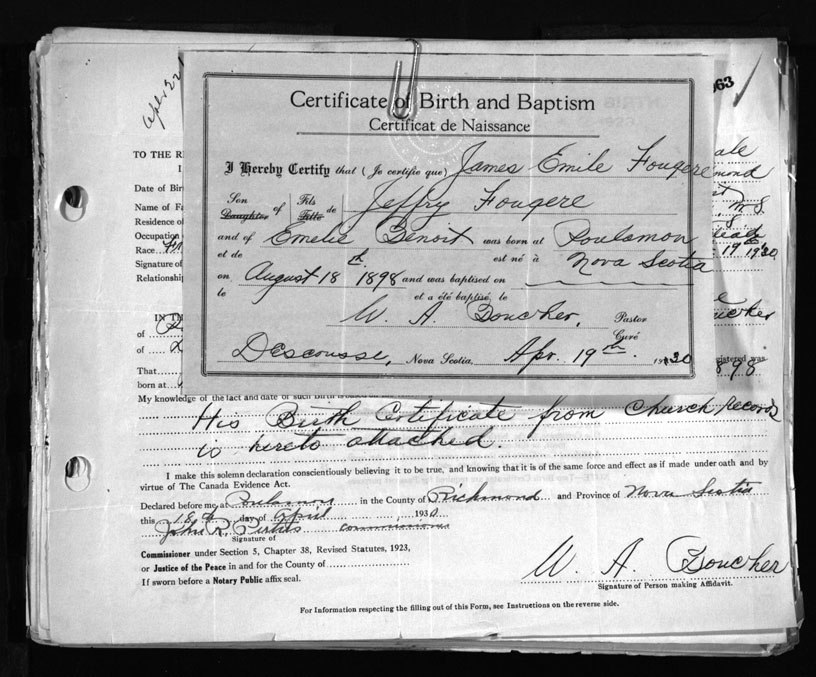 Apr. 22
63
Certificate of Birth and Baptism
Certificat de Naissance
I Hereby Certify that (Je certifie que) James Emile Fougere
Son Daughter of Fils Fille de Jeffry Fougere
and of Emelie Benoit was born at Poulamon
et de est né à Nova Scotia
on August 18th 1898 and was baptised on
le et a été baptisé, le
W. A. Boucher, Pastor
Curé
Descousse, Nova Scotia, Apr. 19th 1930
TO THE R
I
Date of Bir
Name of Fa
Residence of
Occupation
Race
Signature of
Relationship
ale
mond
N. S.
19 1930
IN TH
of
of
That
born at
gistered was
898
My knowledge of the fact and date of such birth
His Birth Certificate from Church Records
is hereto attached.
I make this solemn declaration conscientiously believing it to be true, and knowing that it is of the same force and effect as if made under oath and by
virtue of The Canada Evidence Act.
Declared before me at Poulamon in the County of Richmond and Province of Nova Scotia
this 18th day of April 1930.
John R.
Signature of
Commissioner under Section 5, Chapter 38, Revised Statutes, 1923,
or Justice of the Peace in and for the County of
If sworn before a Notary Public affix seal.
W. A. Boucher
Signature of Person making Affidavit.
For Information respecting the filling out of this Form, see Instructions on the reverse side.